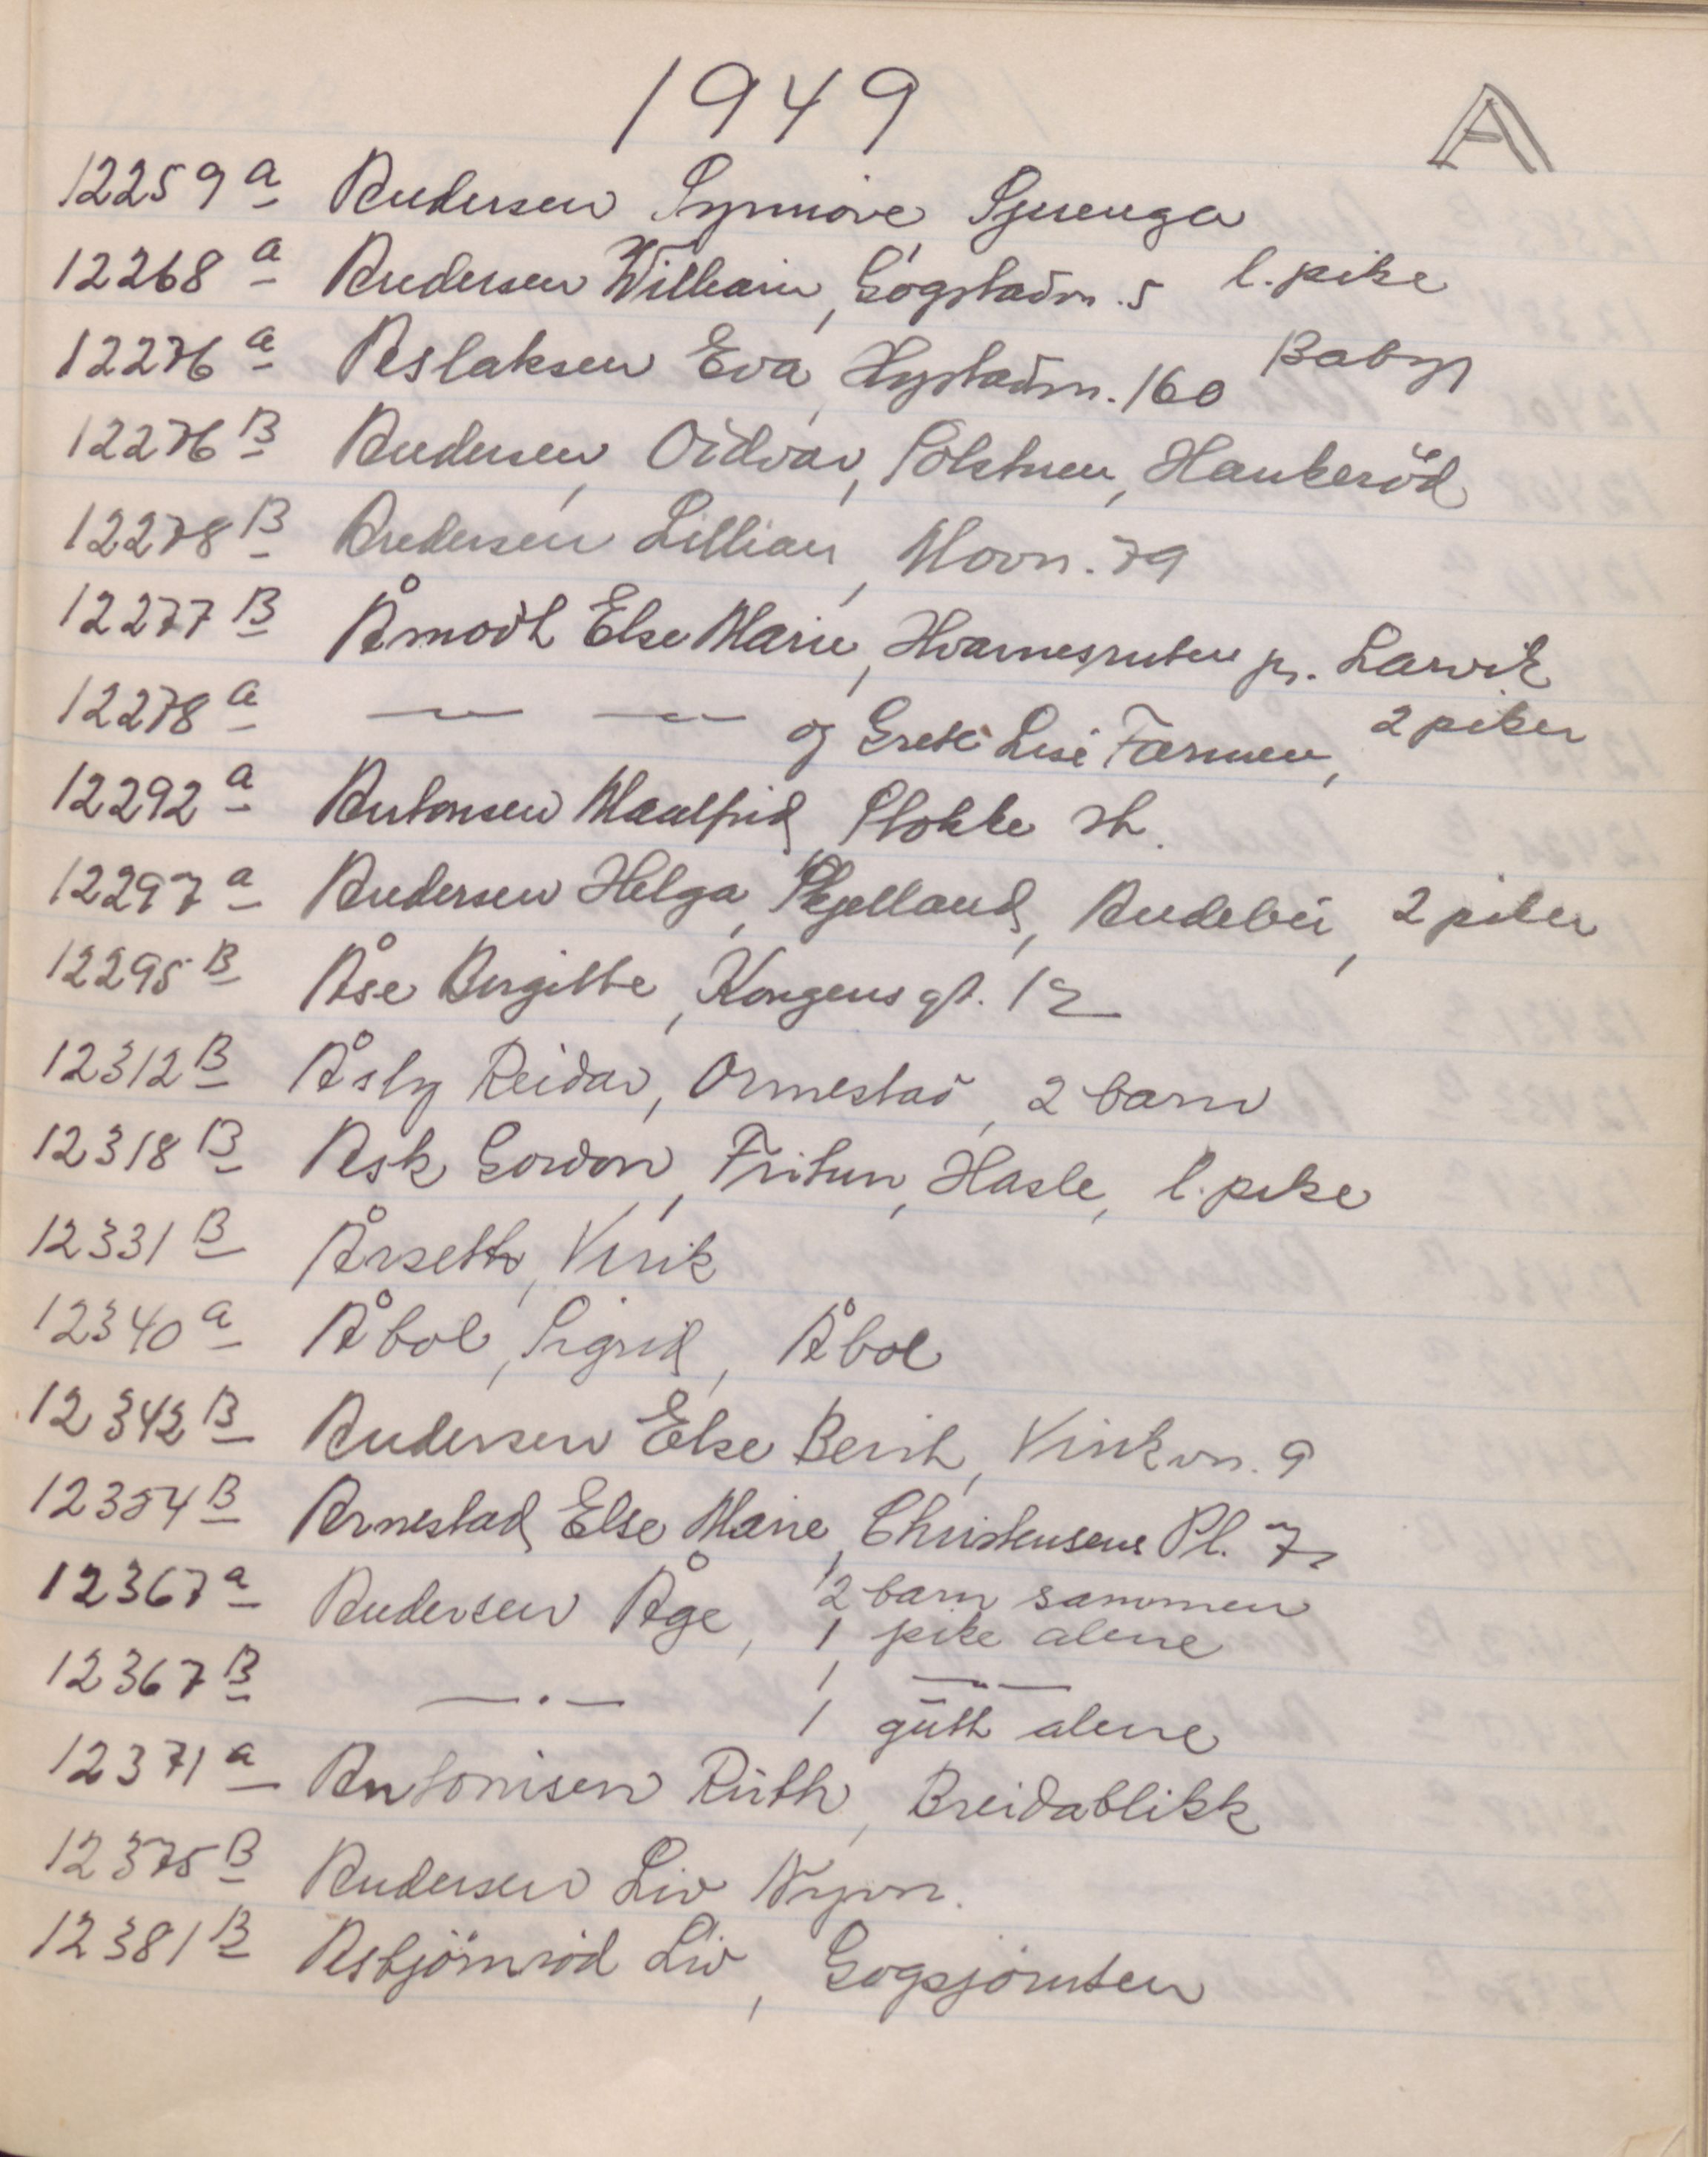 1949
A
12259 a Andersen Synnöve Sjuenga
12268 a Andersen William, Gogstadvn. 5 l. pike
12276 a Aslaksen Eva, Hystadvn. 160 Baby
12276 B Andersen, Oddvar, Solstuen, Haukeröd
12278 B Andersen Lillian, Movn. 79
12277 B Åmodt Else Marie, Hvarnesruten pr. Larvik
12278 a — " — — " — og Grete Lise Farmen, 2 piker
12292 a Antonsen Maalfrid Stokke st.
12297 a Andersen Helga, Skjelland, Andebu, 2 piker
12295 B Åse Birgitte, Kongens gt. 12
12312 B Åsly Reidar, Ormestad, 2 barn
12318 B Ask Gordon, Fritun, Hasle, l. pike
12331 B Årseth, Virik
12340 a Åbol, Sigrid, Åbol
12342 B Andersen Else Berit, Virikvn. 9
12354 B Arnestad Else Marie, Christensens Pl. 7
12367 a Andersen Åge, 2 barn sammen
1 pike alene
12367 B — " — 1 — " —
1 gutt alene
12371 a Antonisen Ruth, Breidablikk
12375 B Andersen Liv Nyvn.
12381 B Asbjörnröd Liv, Gogsjöruten